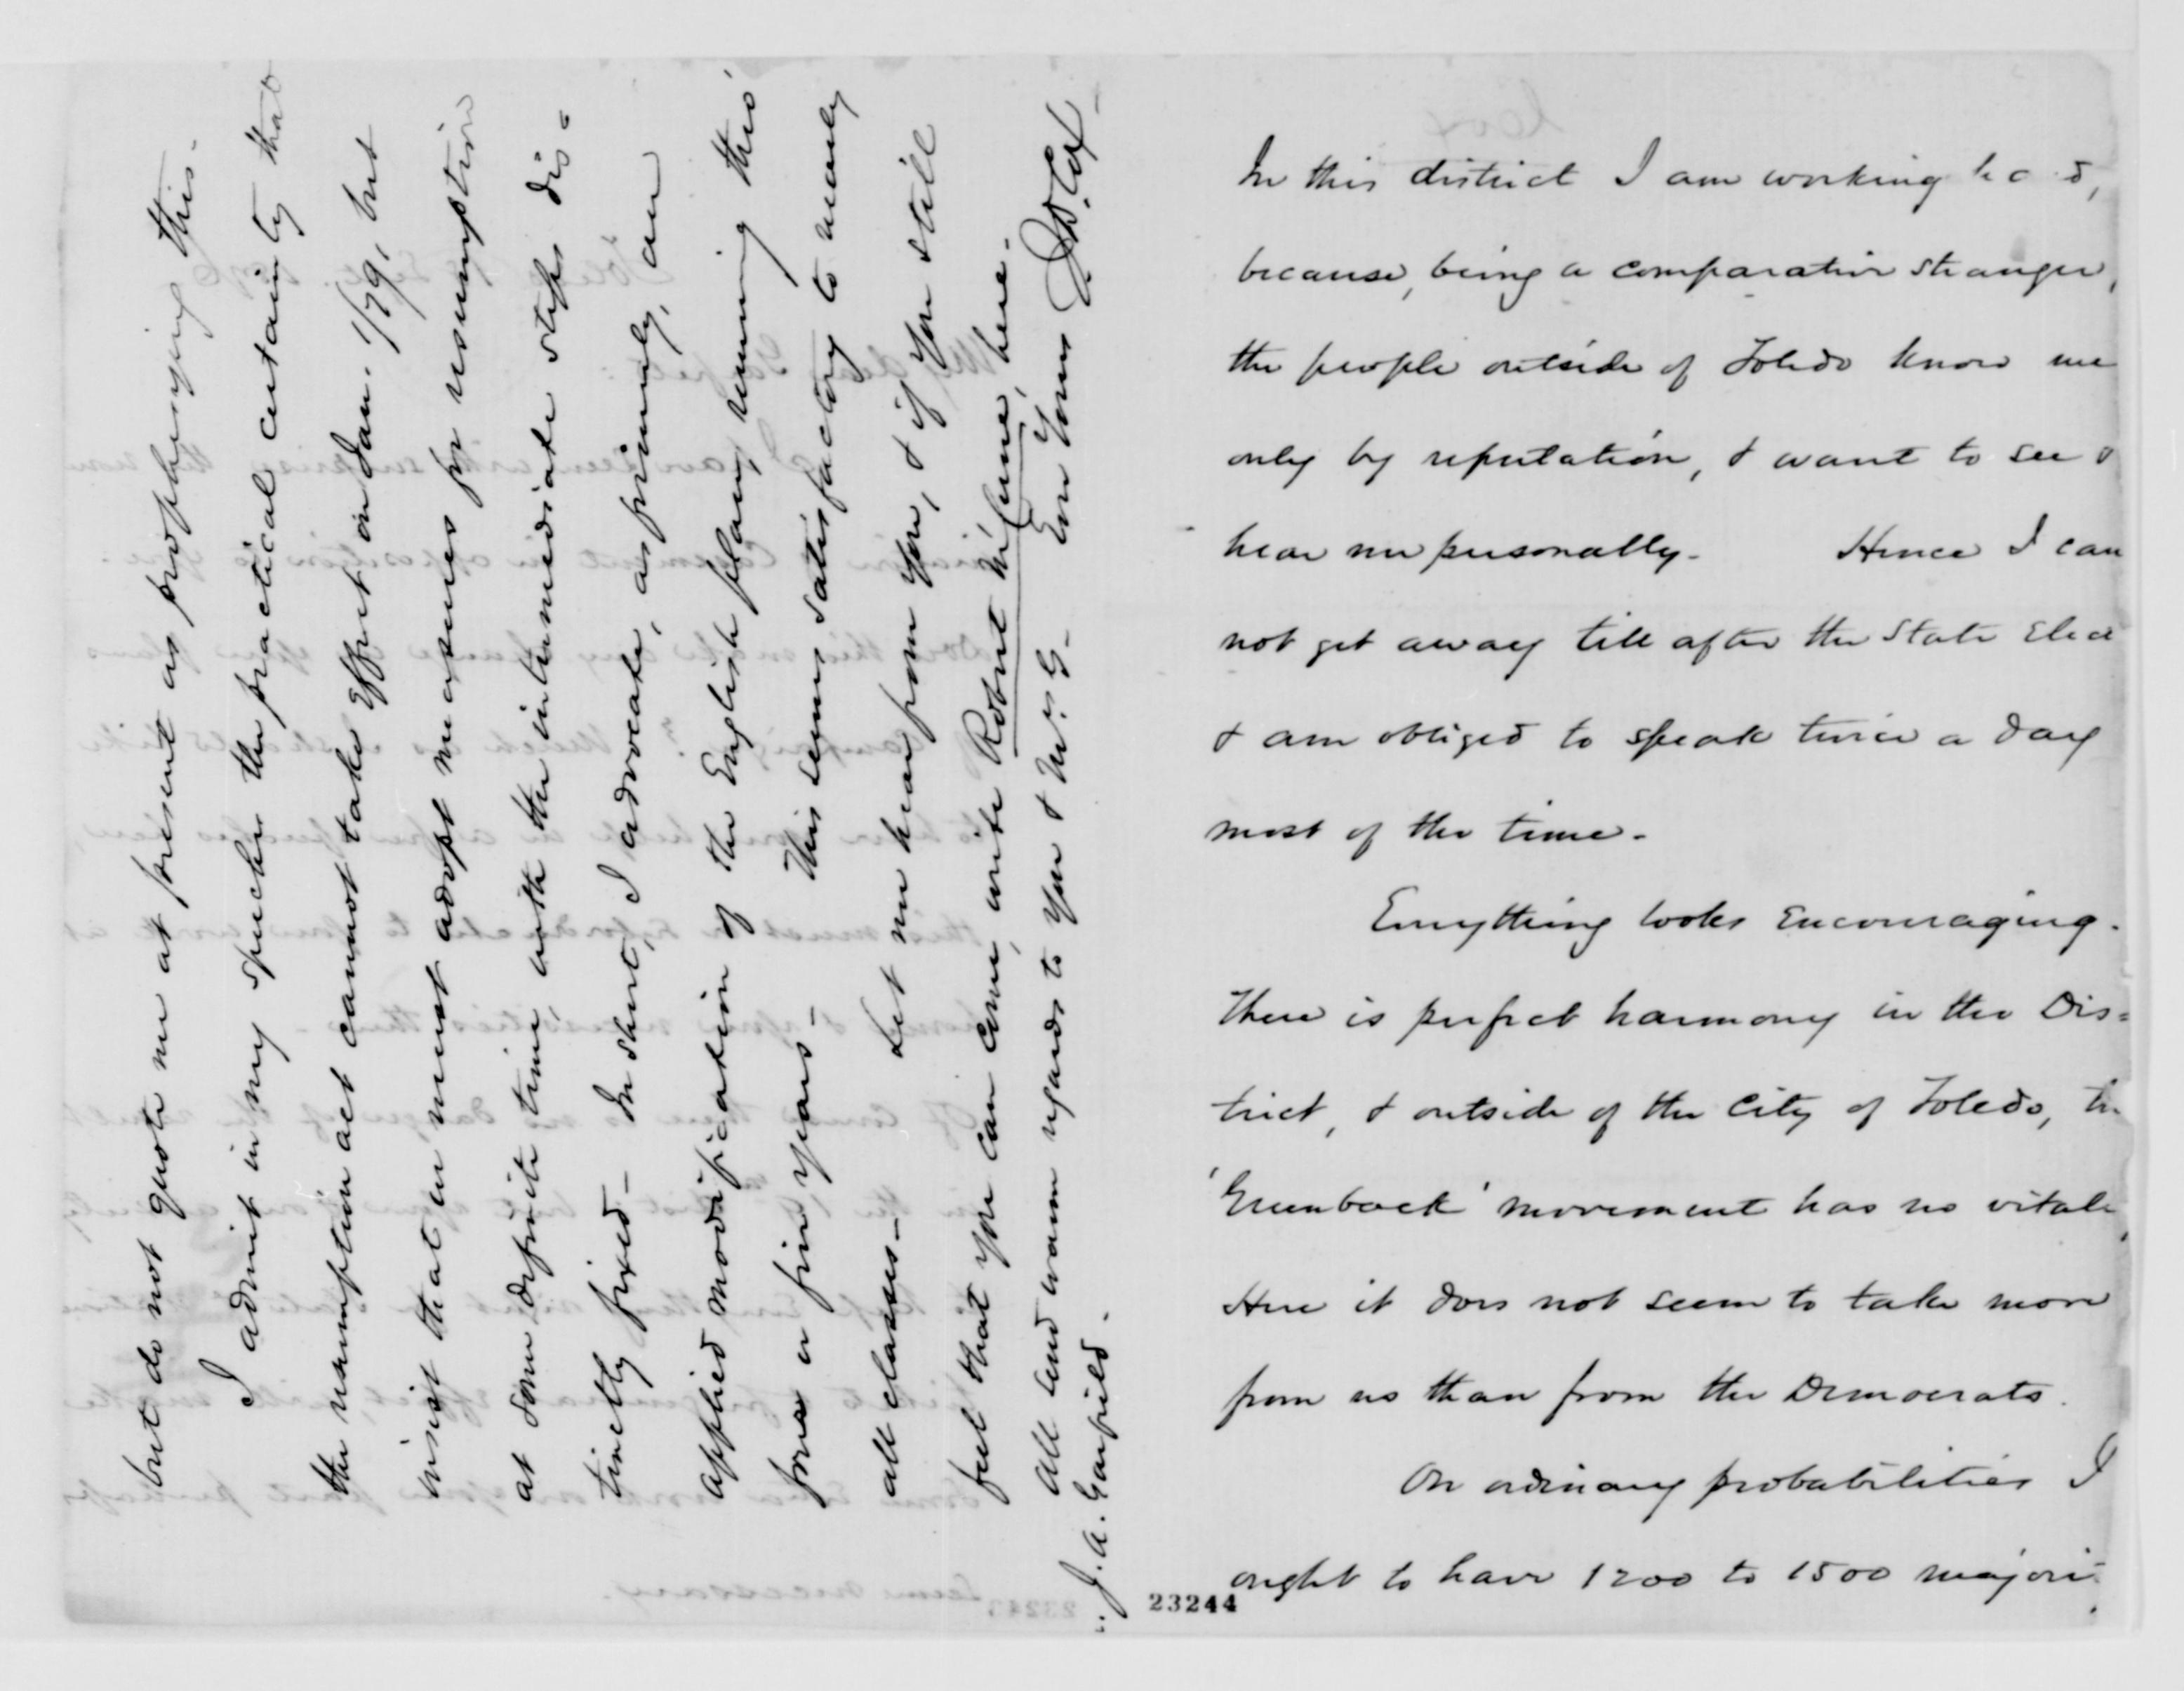 In this district I am working hard,
because, being a comparative stranger,
the people outside of Toledo know me
only by reputation, & want to see &
hear me personally- Hence I can
not get away till after the State Elec
& am obliged to speak twice a day
most of the time-
Everything looks encouraging.
There is perfect harmony in the Dis=
trict, & outside of the City of Toledo, the
'Greenback' movement has no vitali
Here it does not seem to take more
from us than from the Democrats.
On ordinary probabilities I
ought to have 1200 to 1500 majori-
23244
but do not quote me at present as prophesying this-
I admit in my speeches the practical certainty that
the resumption act cannot take effect on Jan. 1/79, but
insist that we must adopt measures for resumption
at some definite time, with the intermediate steps dis=
tinctly fixed- In short, I advocate, as primarily, an
applied modification of the English plan, running this
four or five years- This seems satisfactory to nearly
all classes- Let me hear from you, & if you still
feel that you can come, write Robert McCune, here-
All send warm regards to you & Mrs. G- Ever Yours J.D. Cox-
J. A. Garfield.